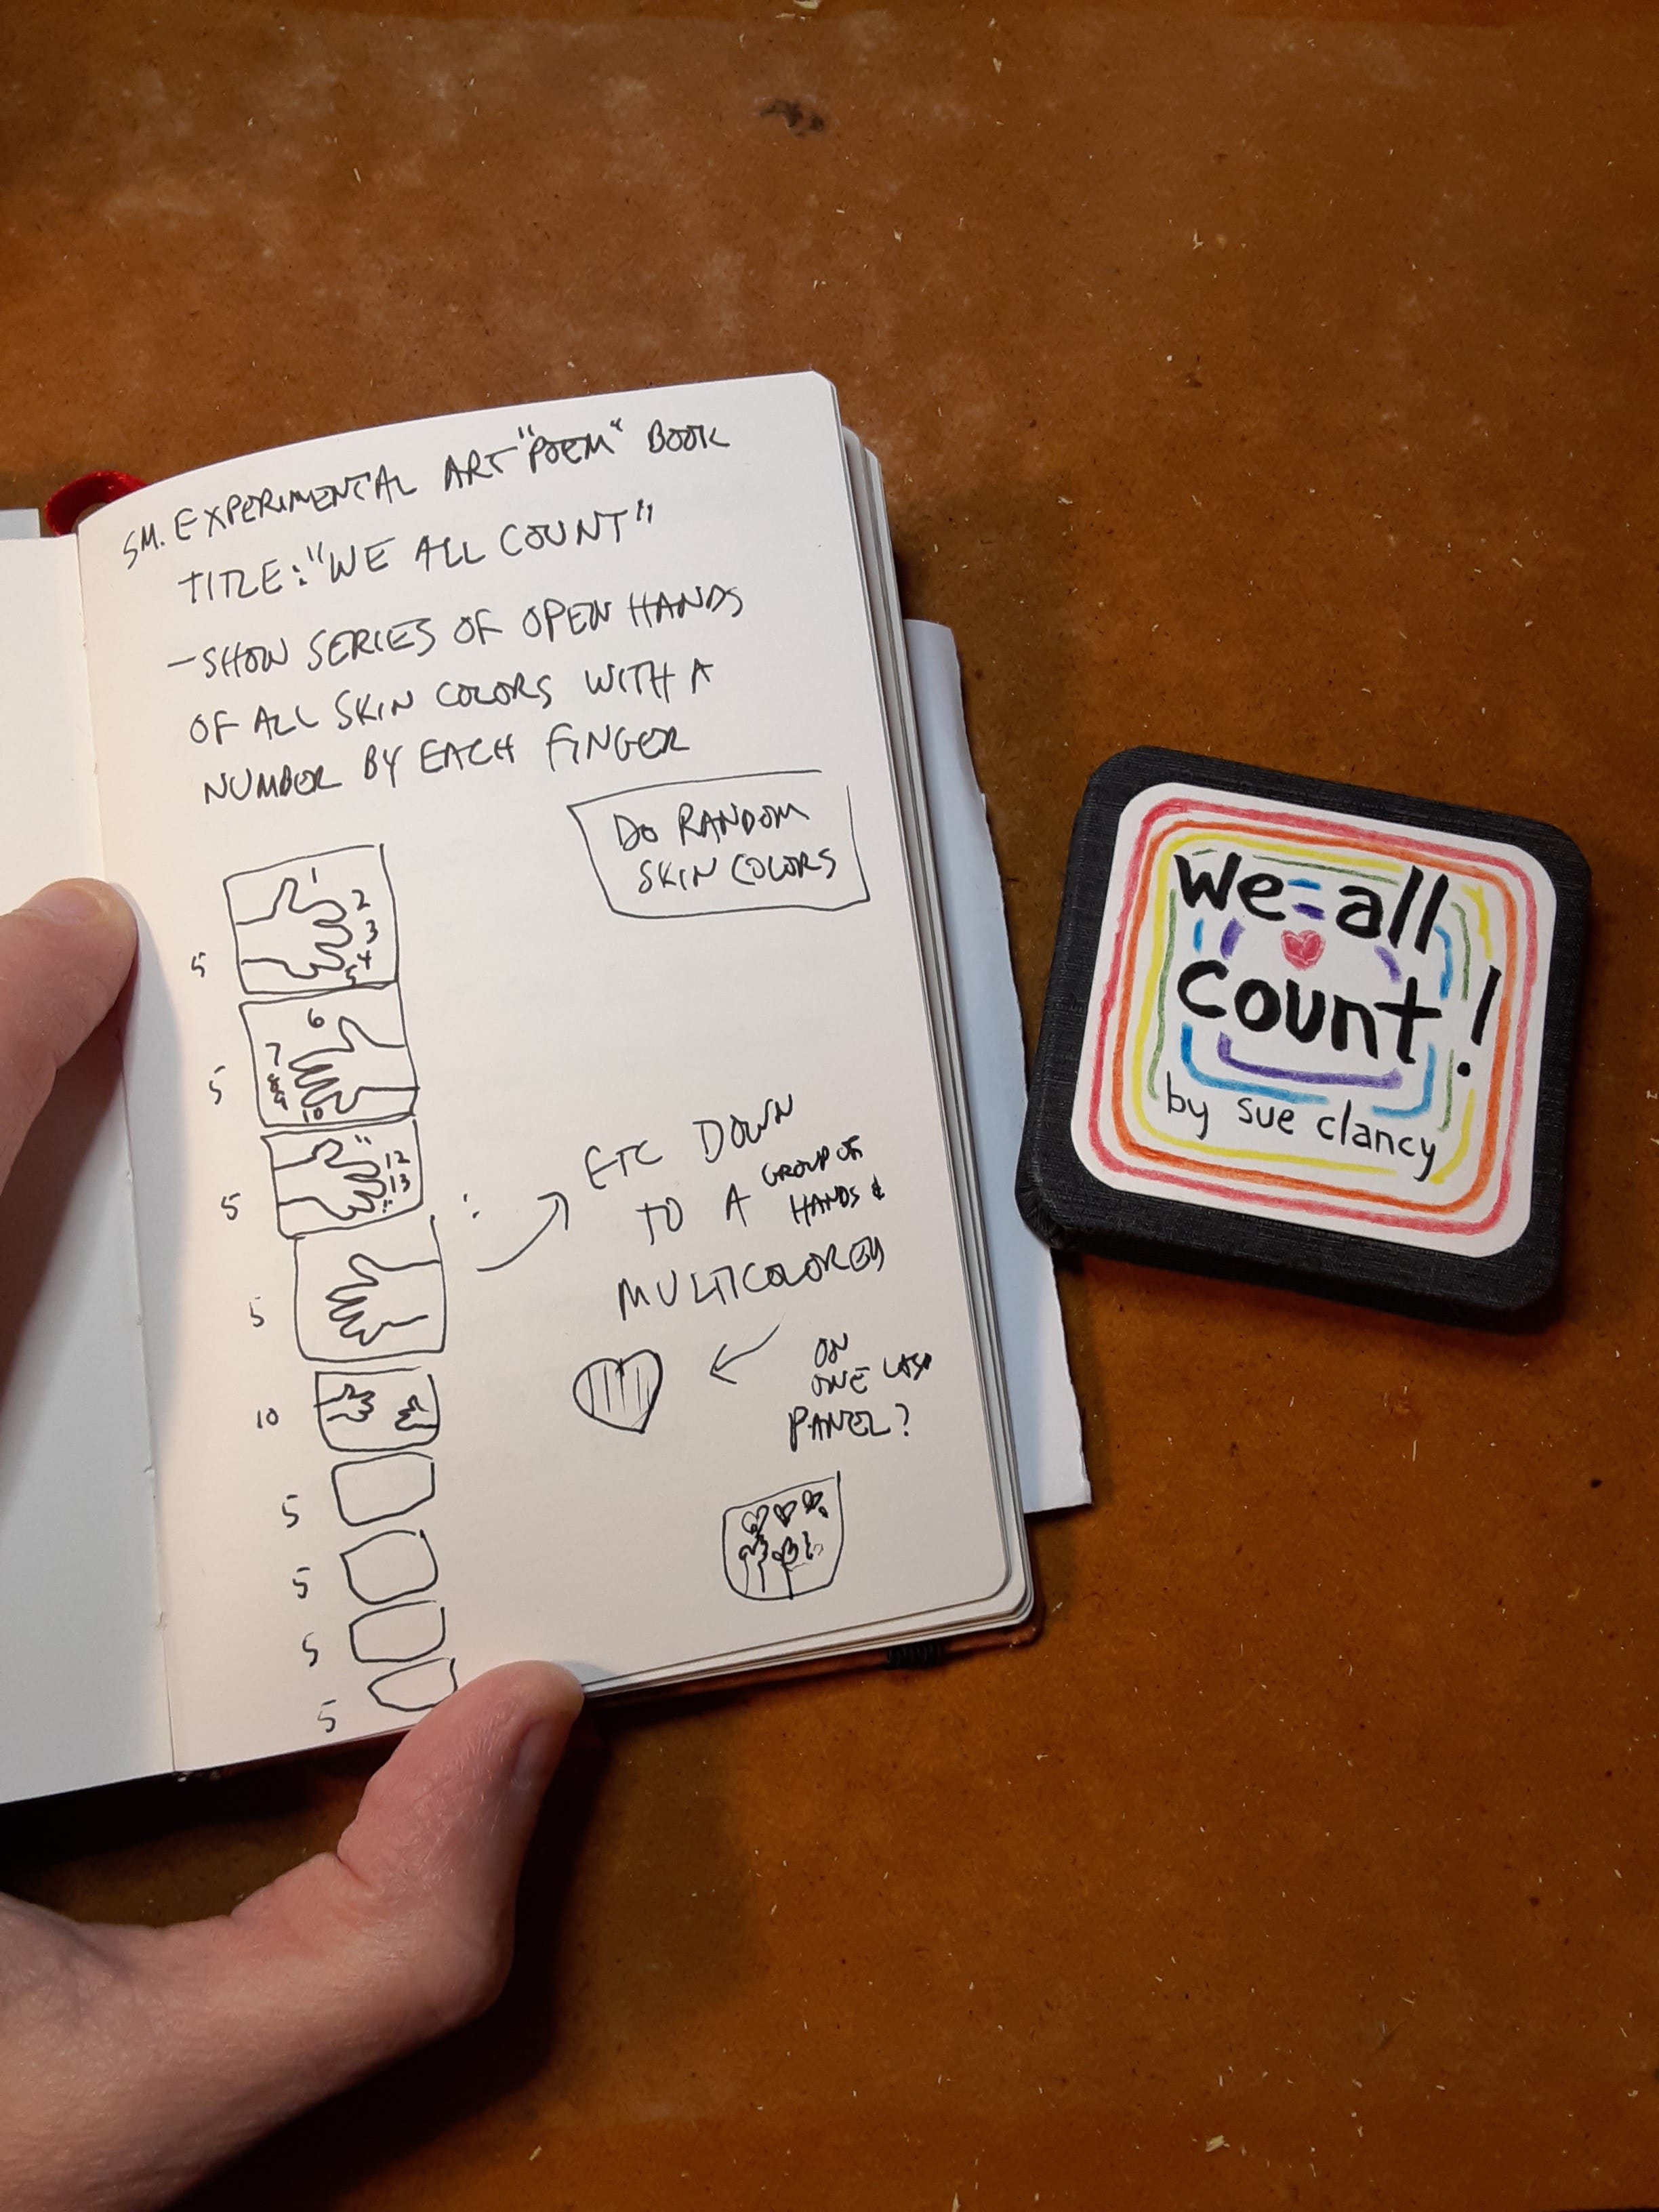 SM. EXPERIMENTAL ART "POEM" BOOK
TITLE: "WE ALL COUNT"
- SHOW SERIES OF OPEN HANDS
OF ALL SKIN COLORS WITH A
NUMBER BY EACH FINGER
DO RANDOM
SKIN COLORS
1
2
3
4
5
5
6
7
8
9
10
5
11
12
13
5
5
10
5
5
5
5
ETC DOWN
TO A GROUP OF
HANDS &
MULTICOLORED
ON
ONE LAST
PANEL?
we all
count!
by sue clancy